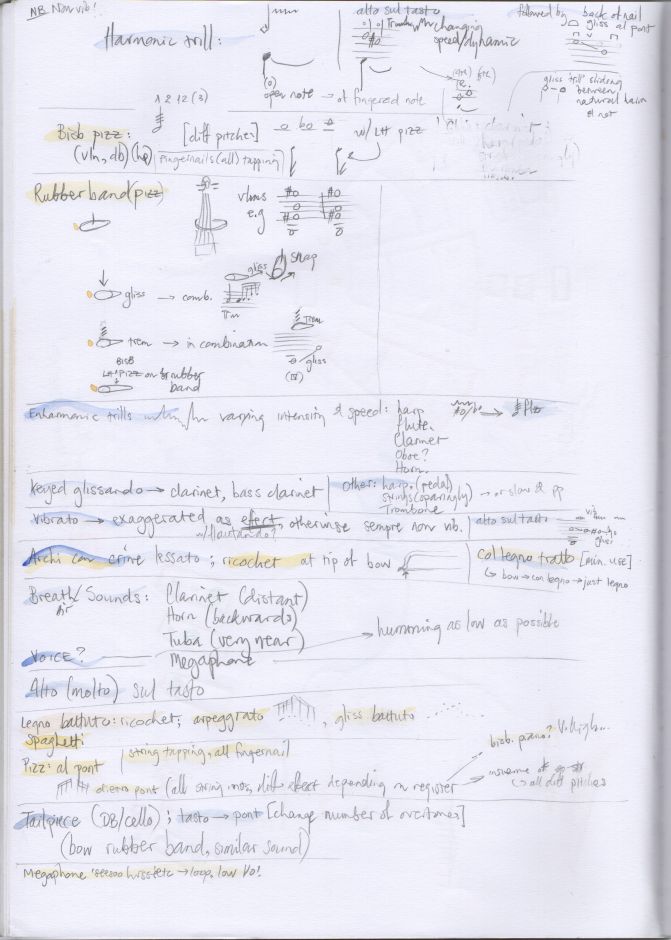 NB Non vib!
Harmonic trill:
alto sul tasto
changing
speed/dynamic
followed by back of nail
gliss al pont
(o)
open note → of fingered note
gliss "trill" sliding
between
natural harm
& not
1 2 12 (3)
Bisb pizz:
(vln, db)
[diff pitches]
w/ LH pizz
Fingernails (all) tapping
Rubber band (pizz)
vlns
e.g
gliss → comb.
gliss
snap
trem → in combination
Trem
gliss
(IV)
BISB
LH PIZZ on rubber
band
Enharmonic trills varying intensity & speed: harp
flute.
Clarinet
Oboe?
Horn.
Keyed glissando → clarinet, bass clarinet
Other: harp. (pedal)
strings (sparingly) → or slow & pp
Trombone
Vibrato → exaggerated as efect, otherwise sempre non vib.
w/flautando?
alto sul tasto
vib
Archi con crine lessato ; ricochet at tip of bow
col legno tratto [min. use]
bow → con legno → just legno
Breath/ Sounds: Clarinet (distant)
Air
Horn (backwards)
Tuba (very near)
Voice?
Megaphone
humming as low as possible
Alto (molto) sul tasto
Legno battuto: ricochet; arpeggiato , gliss battuto
spaghetti
Pizz: al pont
string tapping, all fingernail
bisb. piano?
dietro pont (all strings, diff effect depending on register
all diff pitches
Tailpiece (DB/cello) ; tasto → pont [change number of overtones]
(bow rubber band, similar sound)
Megaphone → loop, low